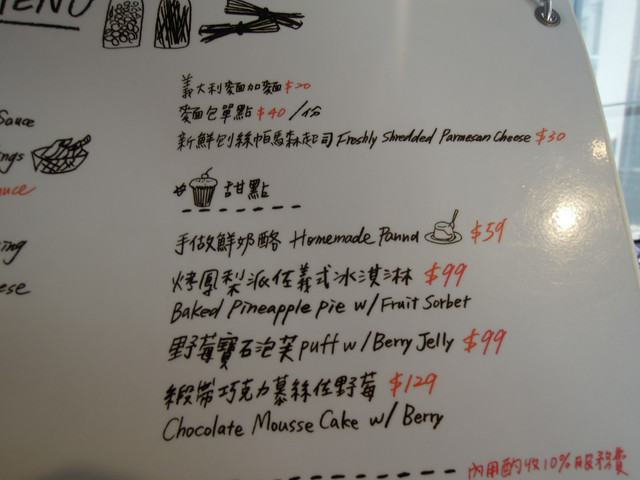 MENU
義大利麵加麵$20
麵包單點$40/份
新鮮刨絲帕馬森起司 Freshly Shredded Parmesan Cheese $30
Sauce
甜點
手做鮮奶酪 Homemade Panna $59
烤鳳梨派佐義式冰淇淋 $99
Baked Pineapple pie w/ Fruit Sorbet
野莓寶石泡芙 puff w/ Berry Jelly $99
緞帶巧克力慕絲佐野莓 $129
Chocolate Mousse Cake w/ Berry
內用酌收10%服務費